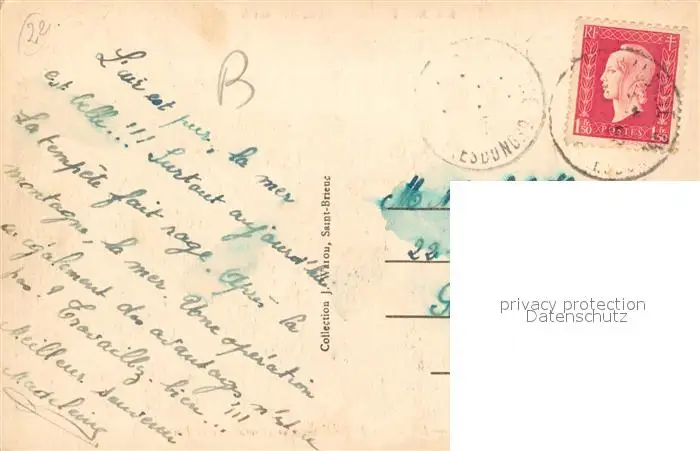 22
B
L'air est pur, la mer
est belle!!! Surtout aujourd'hui
La tempête fait rage. Après la
montagne, la mer. Une opération
a également des avantages, n'est-ce
pas ! Travaillez bien...!!!
Meilleur souvenir
Madeleine
Collection J. Waron, Saint-Brieuc
RF
1 FR 50 POSTES 1 FR 50
M
22
privacy protection
Datenschutz